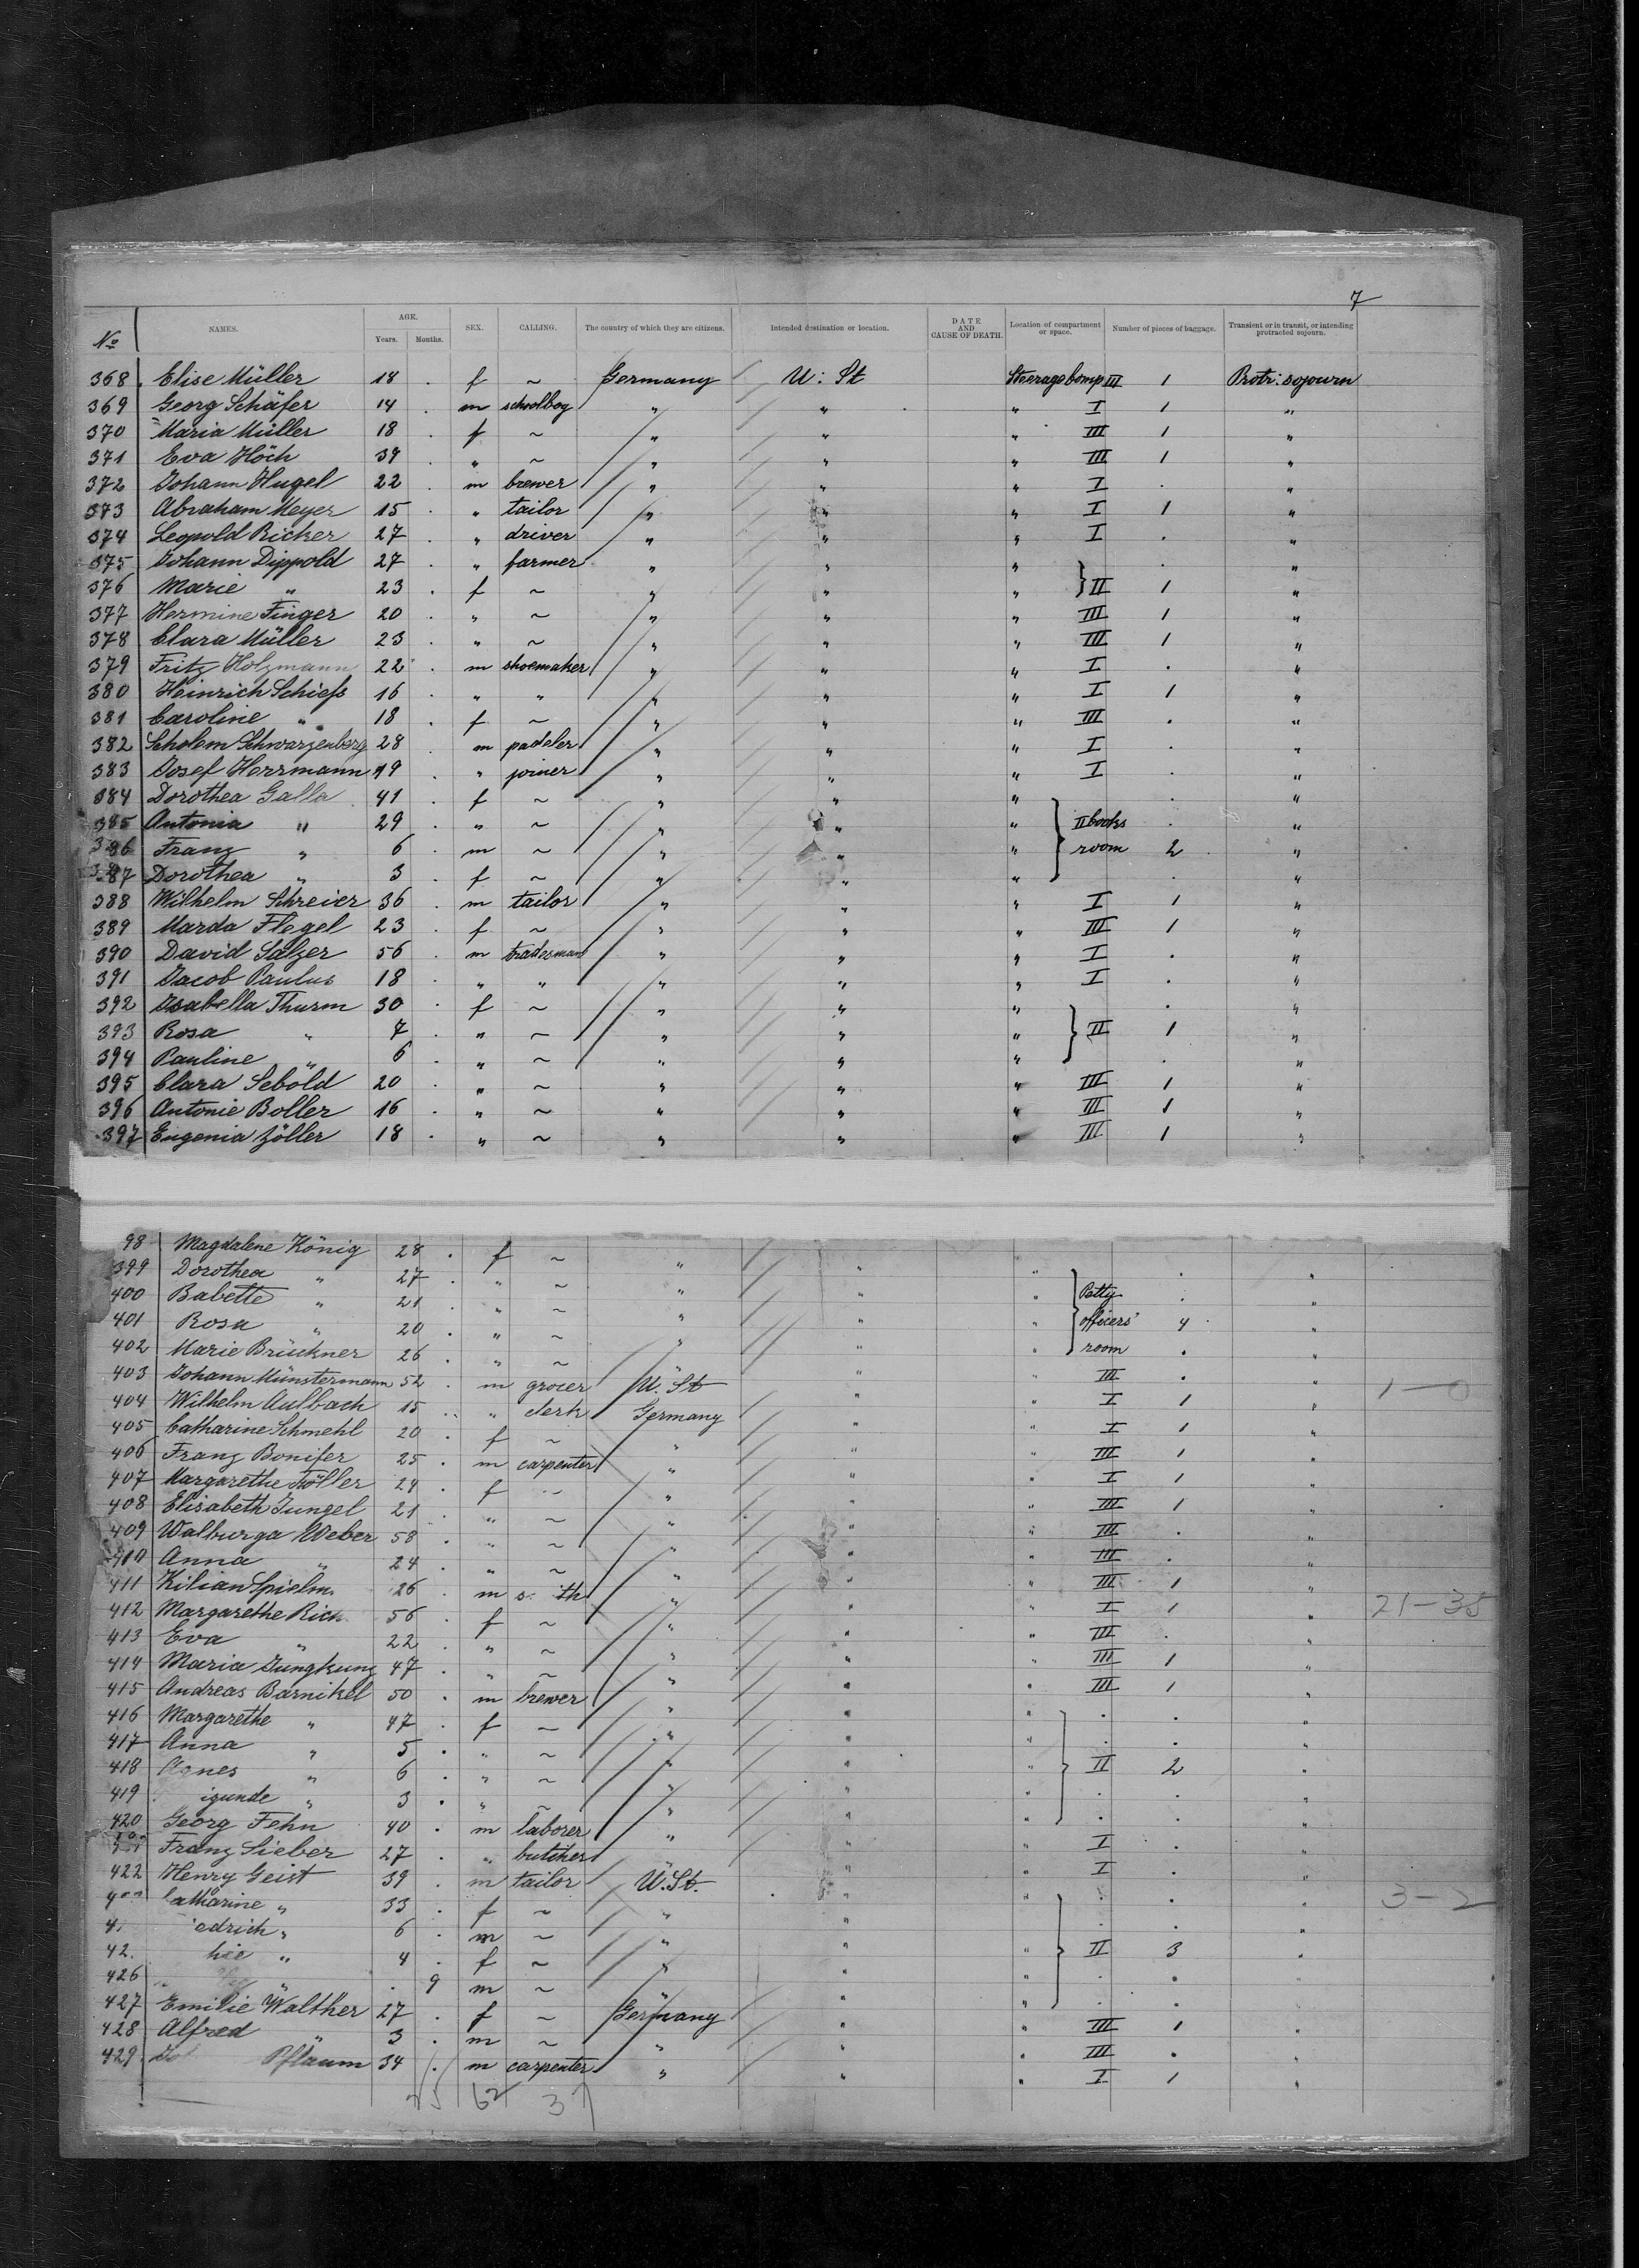 7
No NAMES. AGE. Years. Months. SEX. CALLING. The country of which they are citizens. Intended destination or location. DATE AND CAUSE OF DEATH. Location of compartment or space. Number of pieces of baggage. Transient or in transit, or intending protracted sojourn.
368 Elise Müller 18 . f ~ Germany U: St Steerage Comp III 1 Protr: sojourn
369 Georg Schäfer 14 . m schoolboy " " " I 1 "
370 Maria Müller 18 . f ~ " " " III 1 "
371 Eva Höch 39 . " ~ " " " III 1 "
372 Johann Hugel 22 . m brewer " " " I . "
373 Abraham Meyer 15 . " tailor " " " I 1 "
374 Leopold Ricker 27 . " driver " " " I . "
375 Johann Dippold 27 . " farmer " " " . "
376 Marie " 23 . f ~ " " " II 1 "
377 Hermine Finger 20 . " ~ " " " III 1 "
378 Clara Müller 23 . " ~ " " " III 1 "
379 Fritz Holzmann 22 . m shoemaker " " " I . "
380 Heinrich Schiefs 16 . " " " " " I 1 "
381 Caroline " 18 . f ~ " " " III . "
382 Scholem Schwarzenberg 28 . m padeler " " " I . "
383 Josef Herrmann 19 . " joiner " " " I . "
384 Dorothea Galla 41 . f ~ " " " . "
385 Antonia " 29 . " ~ " " " II books . "
386 Franz " 6 . m ~ " " " room 2 "
387 Dorothea " 3 . f ~ " " " . "
388 Wilhelm Schreier 36 . m tailor " " " I 1 "
389 Marda Flegel 23 . f ~ " " " III 1 "
390 David Salzer 56 . m tradesman " " " I . "
391 Jacob Paulus 18 . " " " " " I . "
392 Isabella Thurm 30 . f ~ " " " . "
393 Rosa " 7 . " ~ " " " II 1 "
394 Pauline " 6 . " ~ " " " . "
395 Clara Sebold 20 . " ~ " " " III 1 "
396 Antonie Boller 16 . " ~ " " " III 1 "
397 Eugenia Zöller 18 . " ~ " " " III 1 "
98 Magdalene König 28 . f ~ " " " . "
399 Dorothea " 27 . " ~ " " " Petty . "
400 Babette " 21 . " ~ " " " officers' 4 "
401 Rosa " 20 . " ~ " " " room . "
402 Marie Brückner 26 . " ~ " " " III . "
403 Johann Münstermann 52 . m grocer U. St " " I 1 " 1-0
404 Wilhelm Aulbach 15 . " clerk Germany " " I 1 "
405 Catharine Schmehl 20 . f ~ " " " III 1 "
406 Franz Bonifer 25 . m carpenter " " " I 1 "
407 MargaretheFöller 24 . f ~ " " " III 1 "
408 Elisabeth Jungel 21 . " ~ " " " III . "
409 Walburga Weber 58 . " ~ " " " III . "
410 Anna " 24 . " ~ " " " III 1 "
411 Kilian Spielm 26 . m s th " " " I 1 " 21-35
412 Margarethe Rich 56 . f ~ " " " III . "
413 Eva " 22 . " ~ " " " III 1 "
414 Maria Jungkunz 47 . " ~ " " " III 1 "
415 Andreas Barnikel 50 . m brewer " " " . . "
416 Margarethe " 47 . f ~ " " " . . "
417 Anna " 5 . " ~ " " " II 2 "
418 Agnes " 6 . " ~ " " " . . "
419 igunde " 3 . " ~ " " " . . "
420 Georg Fehn 40 . m laborer " " " I . "
Franz Sieber 27 . " butcher " " I . "
422 Henry Geist 39 . m tailor U. St. " " . . " 3-2
4 atharine " 33 . f ~ " " . . "
4 edrich " 6 . m ~ " " " II 3 "
42 hie " 4 . f ~ " " " . . "
426 " . 9 m ~ " " " . . "
427 Emilie Walther 27 . f ~ Germany " " III 1 "
428 Alfred " 3 . m ~ " " " III . "
429 Pflaum 34 . m carpenter " " " I 1 "
62 37